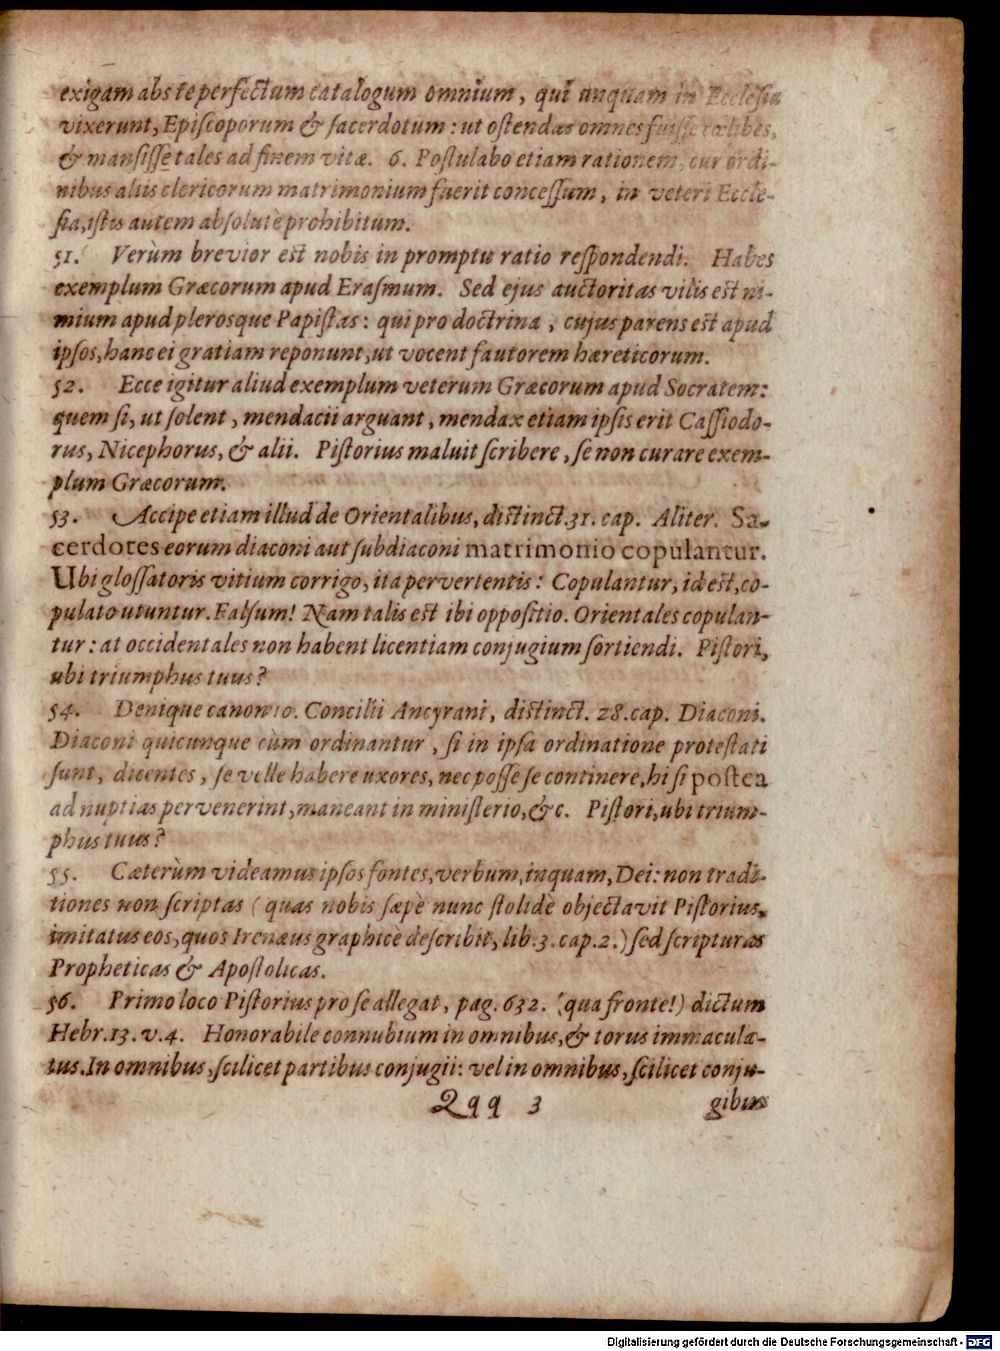 exigam abs te perfectum catalogum omnium, qui unquam in Ecclesia
vixerunt, Episcoporum & sacerdotum: ut ostendas omnes fuisse cœlibes,
& mansisse tales ad finem vitæ. 6. Postulabo etiam rationem, cur ordi-
nibus aliis clericorum matrimonium fuerit concessum, in veteri Eccle-
sia, istis autem absolutè prohibitum.
51. Verùm brevior est nobis in promptu ratio respondendi. Habes
exemplum Græcorum apud Erasmum. Sed ejus auctoritas vilis est ni-
mium apud plerosque Papistas: qui pro doctrina, cujus parens est apud
ipsos, hanc ei gratiam reponunt, ut vocent fautorem hæreticorum.
52. Ecce igitur aliud exemplum veterum Græcorum apud Socratem:
quem si, ut solent, mendacii arguant, mendax etiam ipsis erit Cassiodo-
rus, Nicephorus, & alii. Pistorius maluit scribere, se non curare exem-
plum Græcorum.
53. Accipe etiam illud de Orientalibus, distinct. 31. cap. Aliter. Sa-
cerdotes eorum diaconi aut subdiaconi matrimonio copulantur.
Ubi glossatoris vitium corrigo, ita pervertentis: Copulantur, id est, co-
pulato utuntur. Falsum! Nam talis est ibi oppositio. Orientales copulan-
tur: at occidentales non habent licentiam conjugium sortiendi. Pistori,
ubi triumphus tuus?
54. Denique canon 10. Concilii Ancyrani, distinct. 28. cap. Diaconi.
Diaconi quicunque cùm ordinantur, si in ipsa ordinatione protestati
sunt, dicentes, se velle habere uxores, nec posse se continere, hi si postea
ad nuptias pervenerint, maneant in ministerio, &c. Pistori, ubi trium-
phus tuus?
55. Cæterùm videamus ipsos fontes, verbum, inquam, Dei: non tradi-
tiones non scriptas (quas nobis sæpè nunc stolidè objectavit Pistorius,
imitatus eos, quos Irenæus graphicè describit, lib. 3. cap. 2.) sed scripturas
Propheticas & Apostolicas.
56. Primo loco Pistorius pro se allegat, pag. 632. (qua fronte!) dictum
Hebr. 13. v. 4. Honorabile connubium in omnibus, & torus immacula-
tus. In omnibus, scilicet partibus conjugii: vel in omnibus, scilicet conju-
Qqq 3 gibus
Digitalisierung gefördert durch die Deutsche Forschungsgemeinschaft - DFG